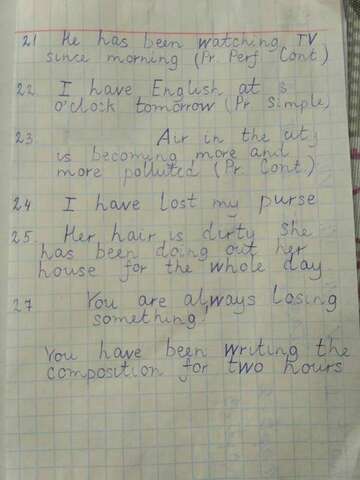 21 He has been watching TV
since morning (Pr. Perf. Cont.)
22. I have English at 8
o'clock tomorrow (Pr. Simple)
23 Air in the city
is becoming more and
more polluted (Pr. Cont.)
24 I have lost my purse
25. Her hair is dirty She
has been doing out her
house for the whole day
27 You are always losing
something!
You have been writing the
composition for two hours